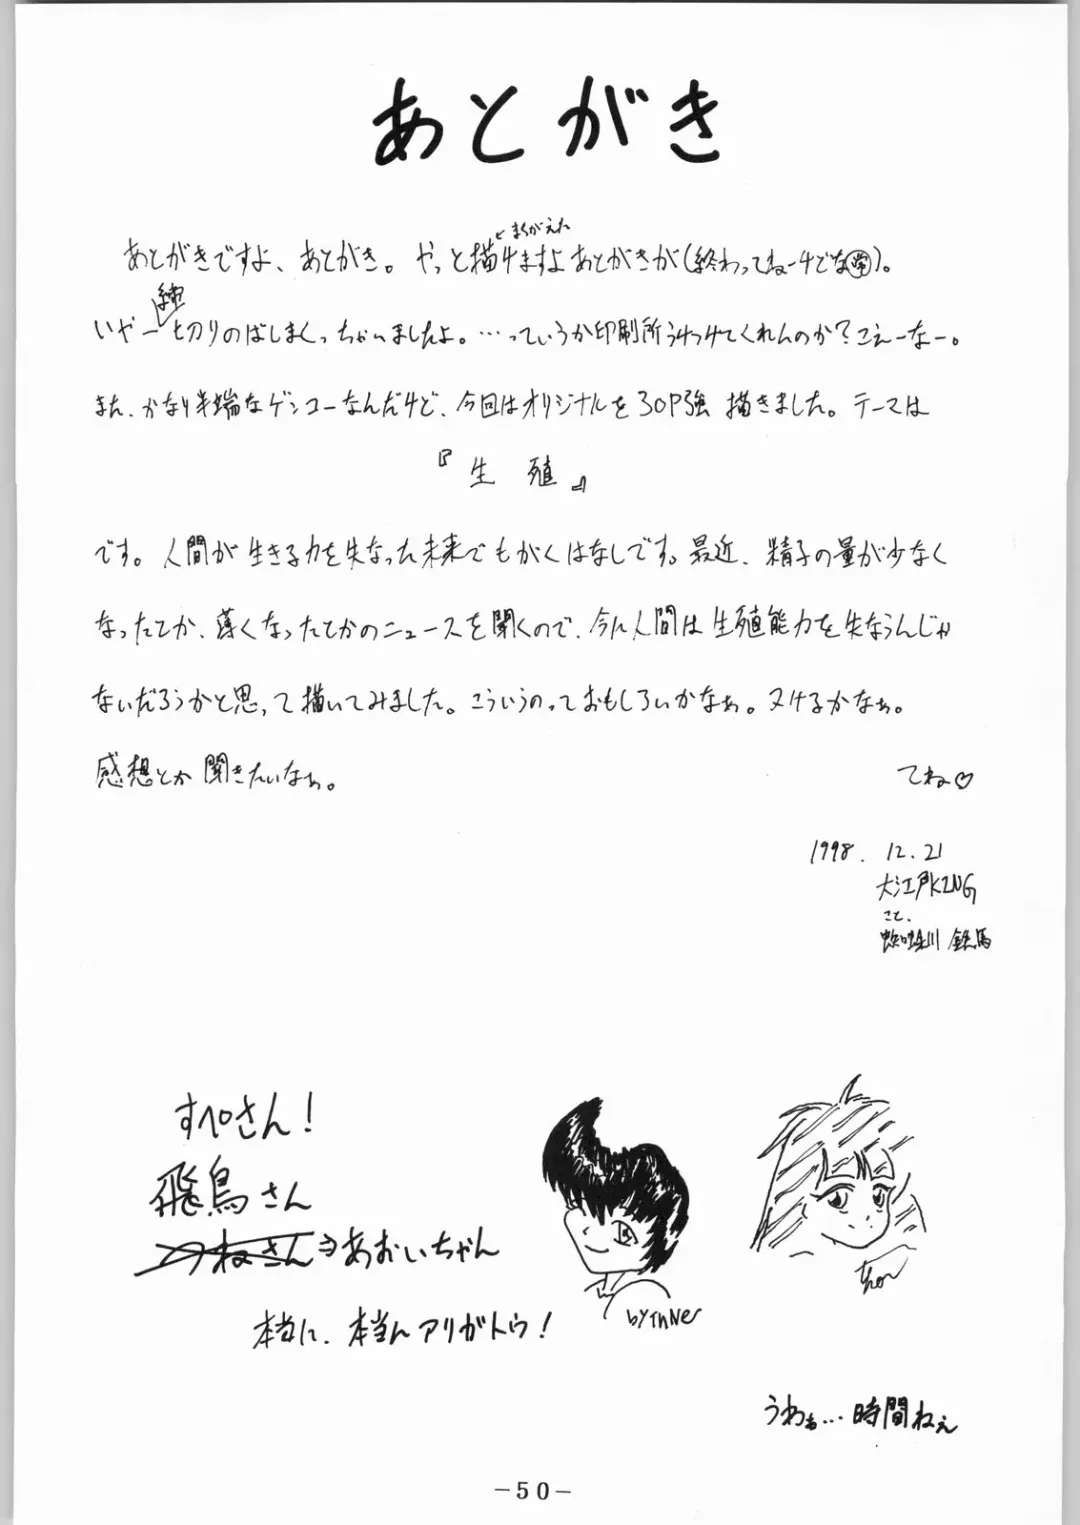 あとがき
まちがえた
あとがきですよ、あとがき。やっと描けますよあとがきが(終わってねーけどな㊙)。
いやー 〆切りのばしまくっちゃいましたよ。…っていうか印刷所うけつけてくれんのか?こえーなー。
また、かなり半端なゲンコーなんだけど、今回はオリジナルを30P強 描きました。テーマは
『生 殖』
です。人間が生きる力を失なった未来でもがくはなしです。最近、精子の量が少なく
なったとか、薄くなったとかのニュースを聞くので、今に人間は生殖能力を失なうんじゃ
ないだろうかと思って描いてみました。こういうのっておもしろいかなぁ。ヌけるかなぁ。
感想とか 聞きたいなぁ。
てね♡
1998. 12. 21
大江戸KING
こと、
蜘蛛川 鉄馬
すぺさん!
飛鳥さん
つねさん⇒あおいちゃん
本当に、本当にアリガトウ!
by
うわぁ…時間ねぇ
-50-